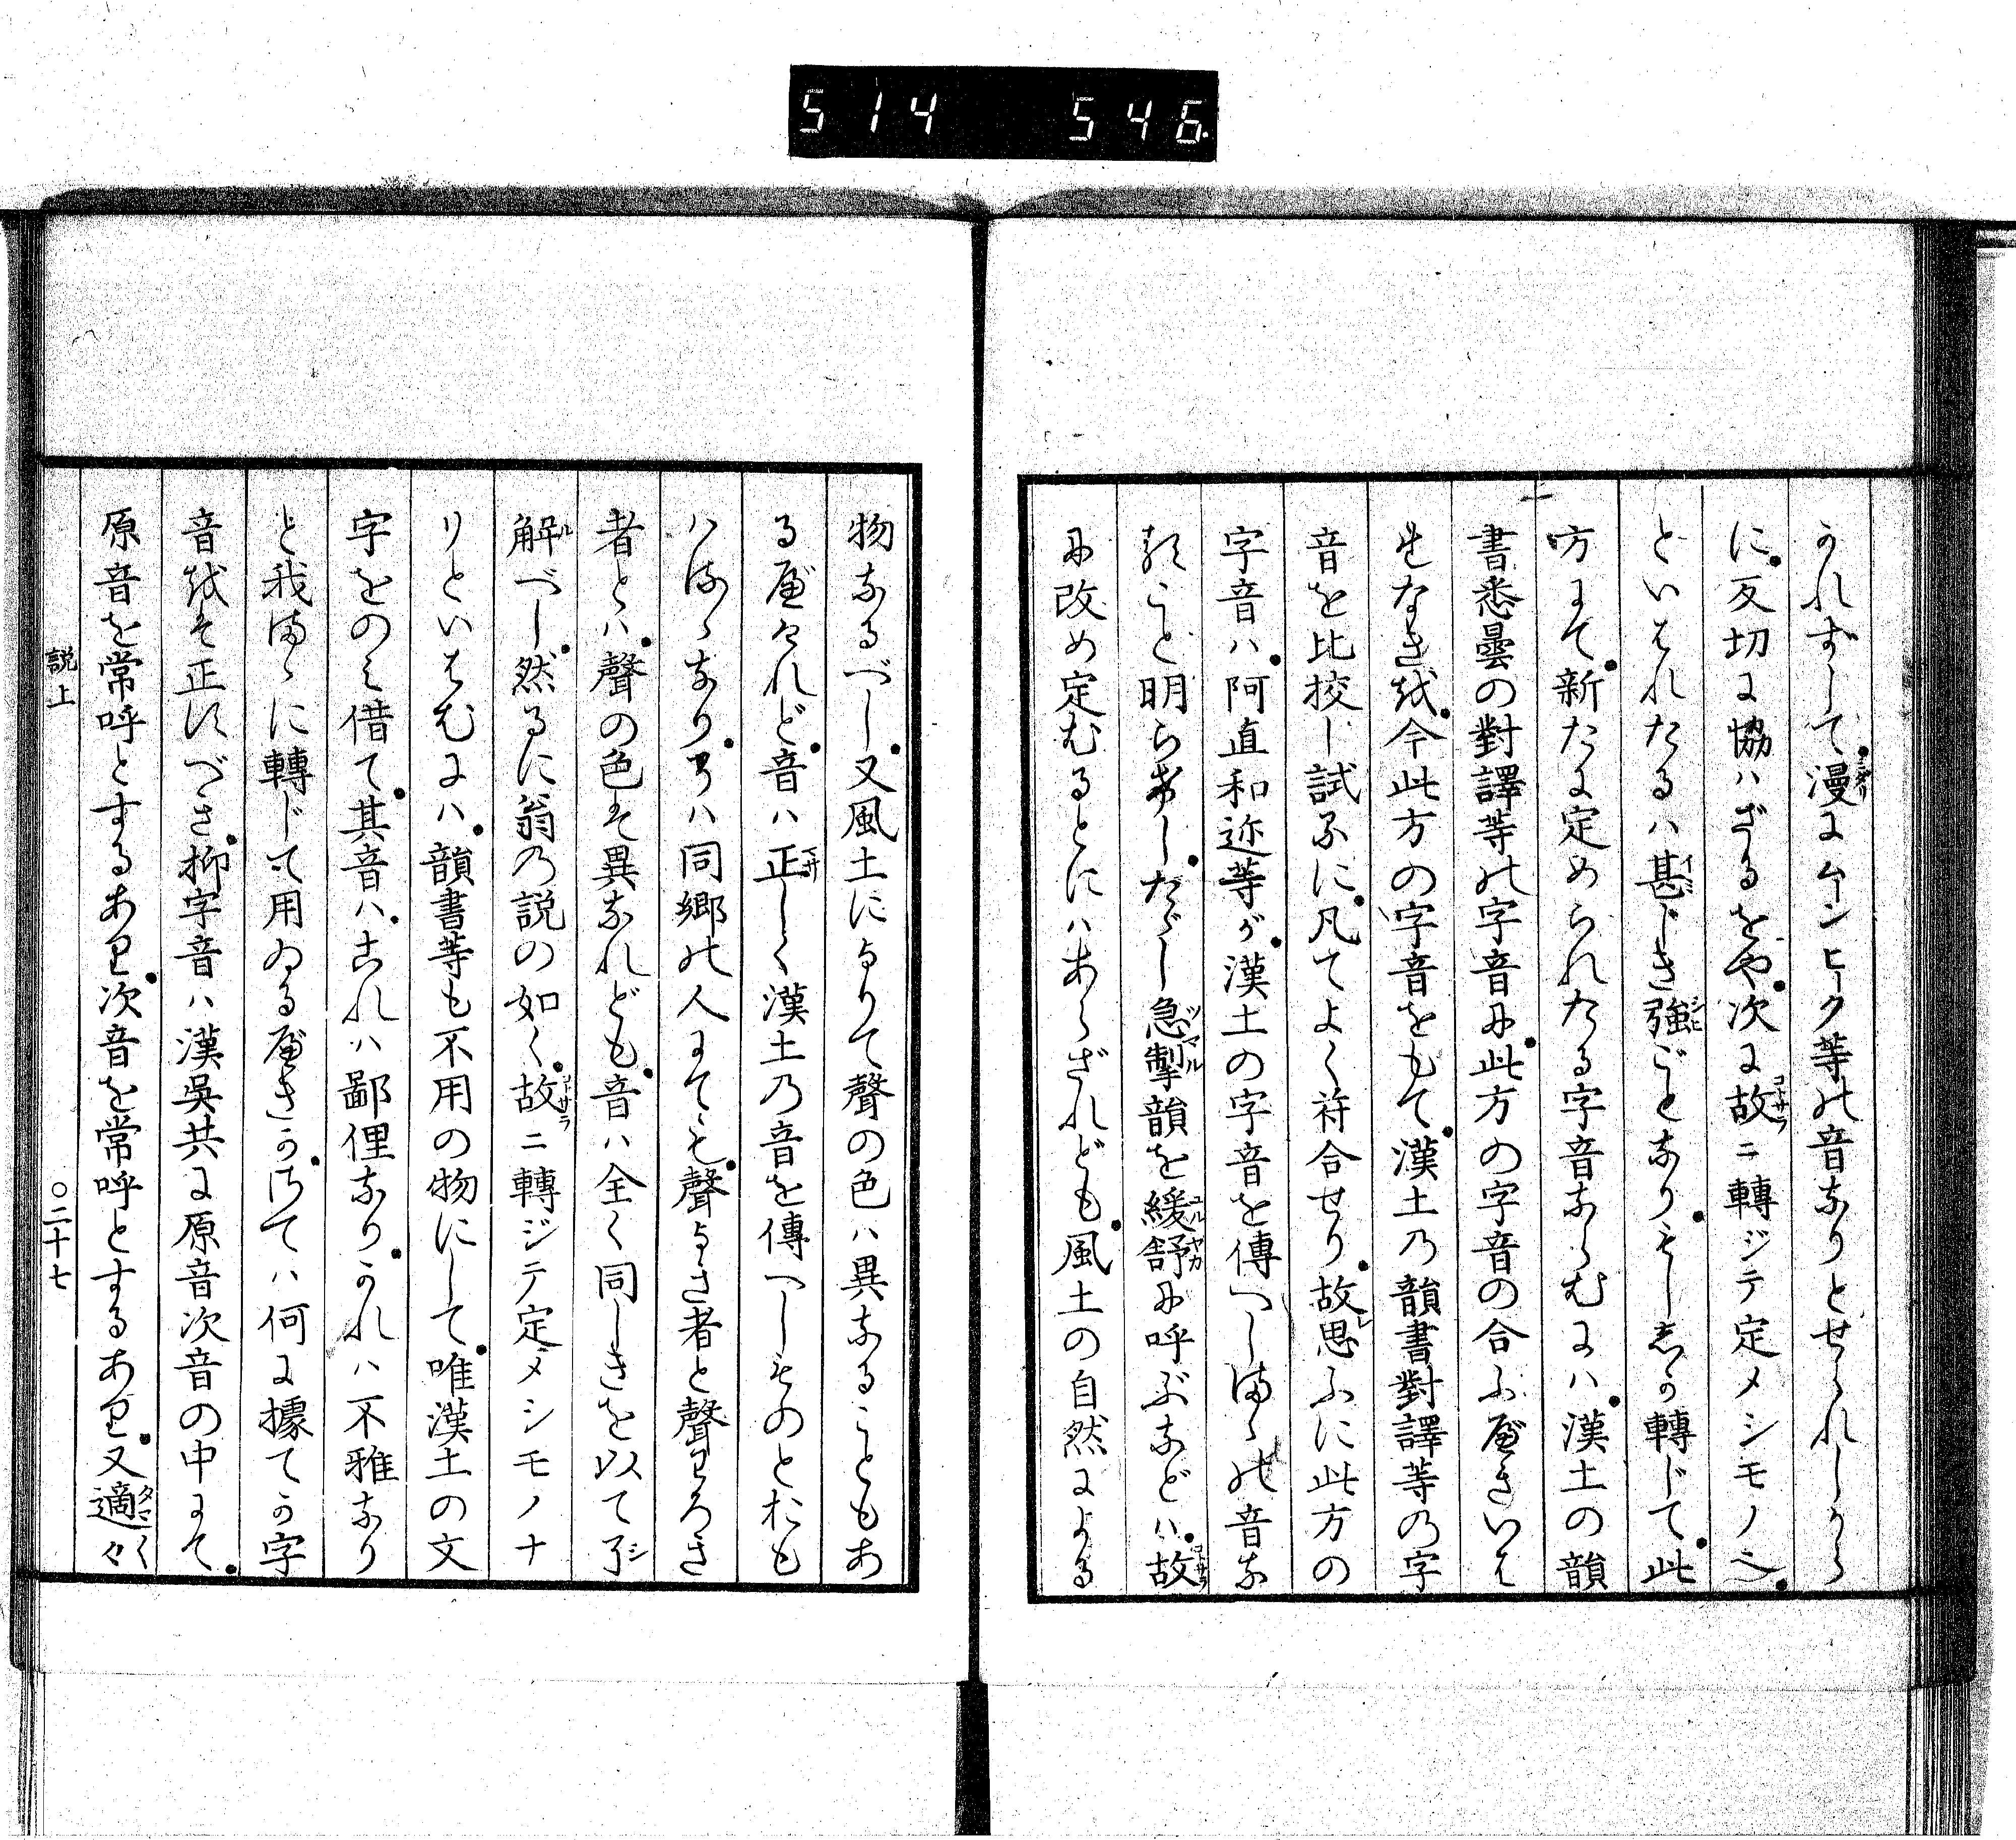 514 546
かれずして漫にムーンヒーク等の音なりとせられしから
に反切に協ハざるをや次に故ニ轉ジテ定メシモノ也
といはれたるハ甚じき強ごとなりもししか轉じて此
方にて新たに定められたる字音ならむにハ漢土の韻
書悉曇の對譯等の字音に此方の字音の合ふべきいは
れなきを今此方の字音をもて漢土の韻書對譯等の字
音を比挍し試るに凡てよく符合せり故思ふに此方の
字音ハ阿直和迩等が漢土の字音を傳へしまゝの音な
ること明らけしただし急掣韻を緩舒に呼ぶなどハ故
に改め定むるとにハあらざれども風土の自然による
物なるべし又風土によりて聲の色ハ異なることもあ
るべけれど音ハ正しく漢土の音を傳へしものとおも
ハるゝなりそハ同郷の人にても聲よき者と聲わろき
者とハ聲の色そ異なれども音ハ全く同しきを以て了
解べし然るに翁の説の如く故ニ轉ジテ定メシモノナ
リといはむにハ韻書等も不用の物にして唯漢土の文
字をのみ借て其音ハこれハ鄙俚なりかれハ不雅なり
と我まゝに轉じて用ゐるべきかさてハ何に據てか字
音をそ正すべき抑字音ハ漢呉共に原音次音の中にて
原音を常呼とするあり次音を常呼とするあり又適々
説上 〇二十七